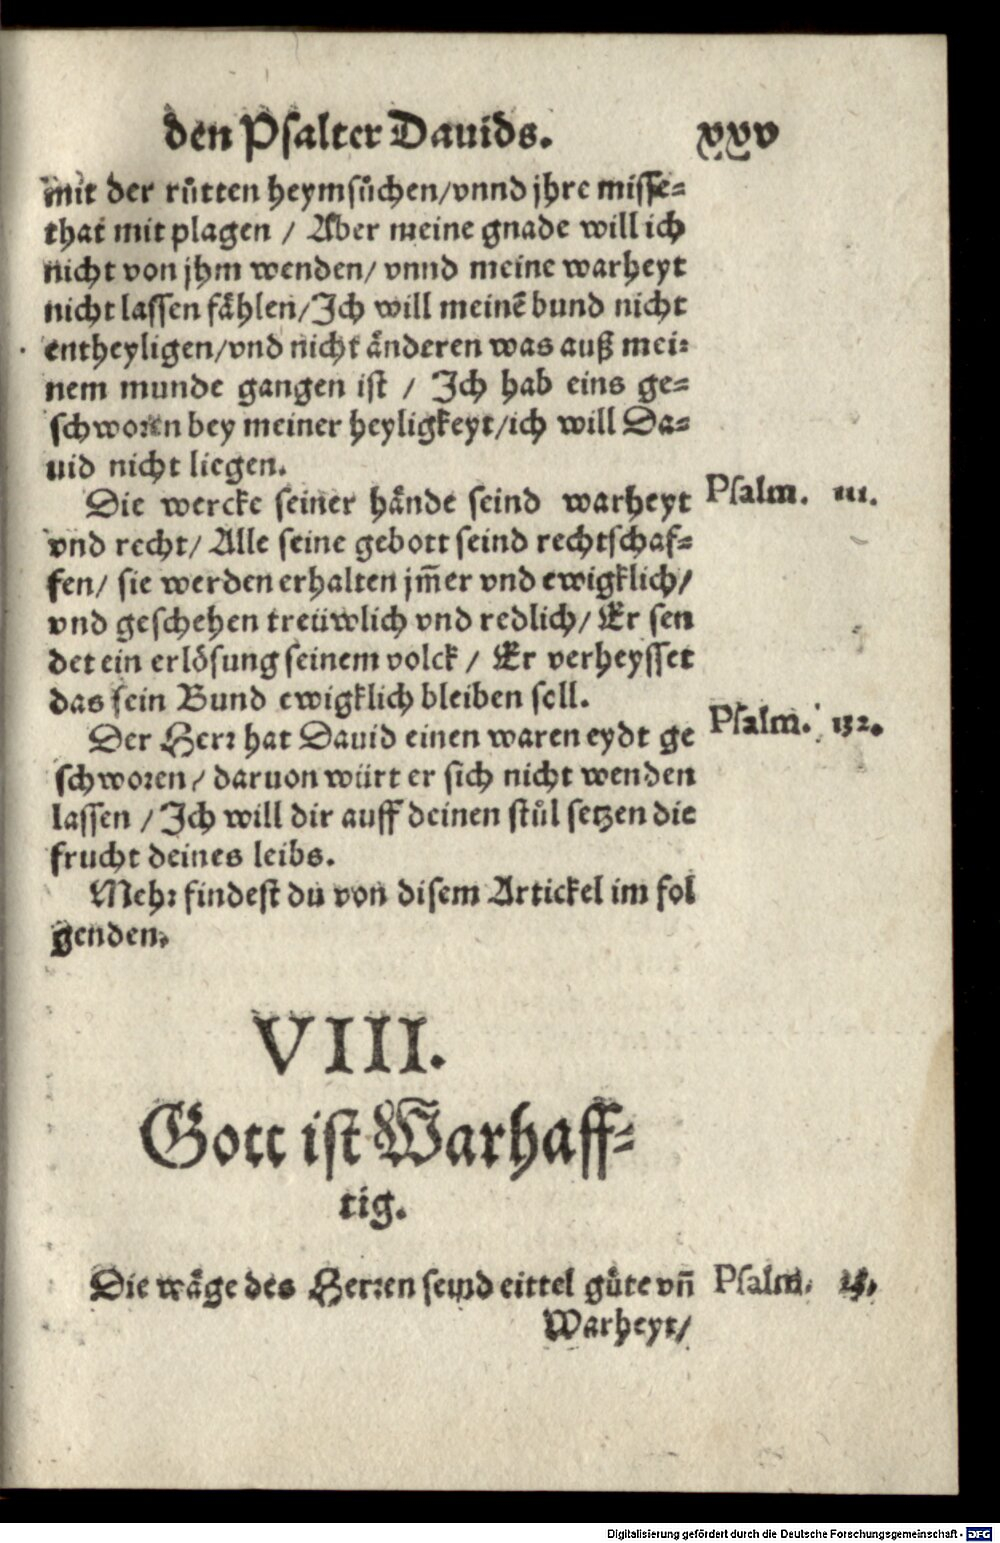 den Psalter Dauids. xxv
mit der růtten heymsůchen/vnnd jhre misse⸗
that mit plagen / Aber meine gnade will ich
nicht von jhm wenden/ vnnd meine warheyt
nicht lassen fählen/Ich will meinē bund nicht
entheyligen/vnd nicht änderen was auß mei⸗
nem munde gangen ist / Ich hab eins ge⸗
schworen bey meiner heyligkeyt/ich will Da⸗
uid nicht liegen.
Die wercke seiner hände seind warheyt Psalm. 111.
vnd recht/ Alle seine gebott seind rechtschaf⸗
fen/ sie werden erhalten jm̄er vnd ewigklich/
vnd geschehen treüwlich vnd redlich/ Er sen
det ein erlösung seinem volck / Er verheysset
das sein Bund ewigklich bleiben soll.
Der Herr hat Dauid einen waren eydt ge Psalm. 132.
schworen/ daruon würt er sich nicht wenden
lassen /Ich will dir auff deinen stůl setzen die
frucht deines leibs.
Mehr findest du von disem Artickel im fol
genden.
VIII.
Gott ist Warhaff⸗
tig.
Die wäge des Herren seind eittel gůte vn̄ Psalm. 25.
Warheyt/
Digitalisierung gefördert durch die Deutsche Forschungsgemeinschaft - DFG